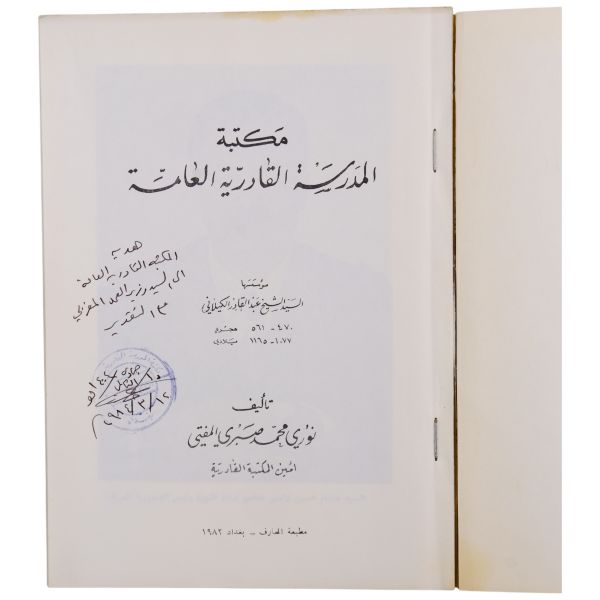 مكتبة
المدرسة القادرية العامة
هدية
المكتبة القادرية العامة
الى السيد وزير العدل المغربي
مع التقدير
مؤسسها
السيد الشيخ عبد القادر الكيلاني
٤٧٠ - ٥٦١ هجري
١٠٧٧ - ١١٦٥ ميلادي
تأليف
نوري محمد صبري المفتي
امين المكتبة القادرية
مطبعة المعارف - بغداد ١٩٨٢